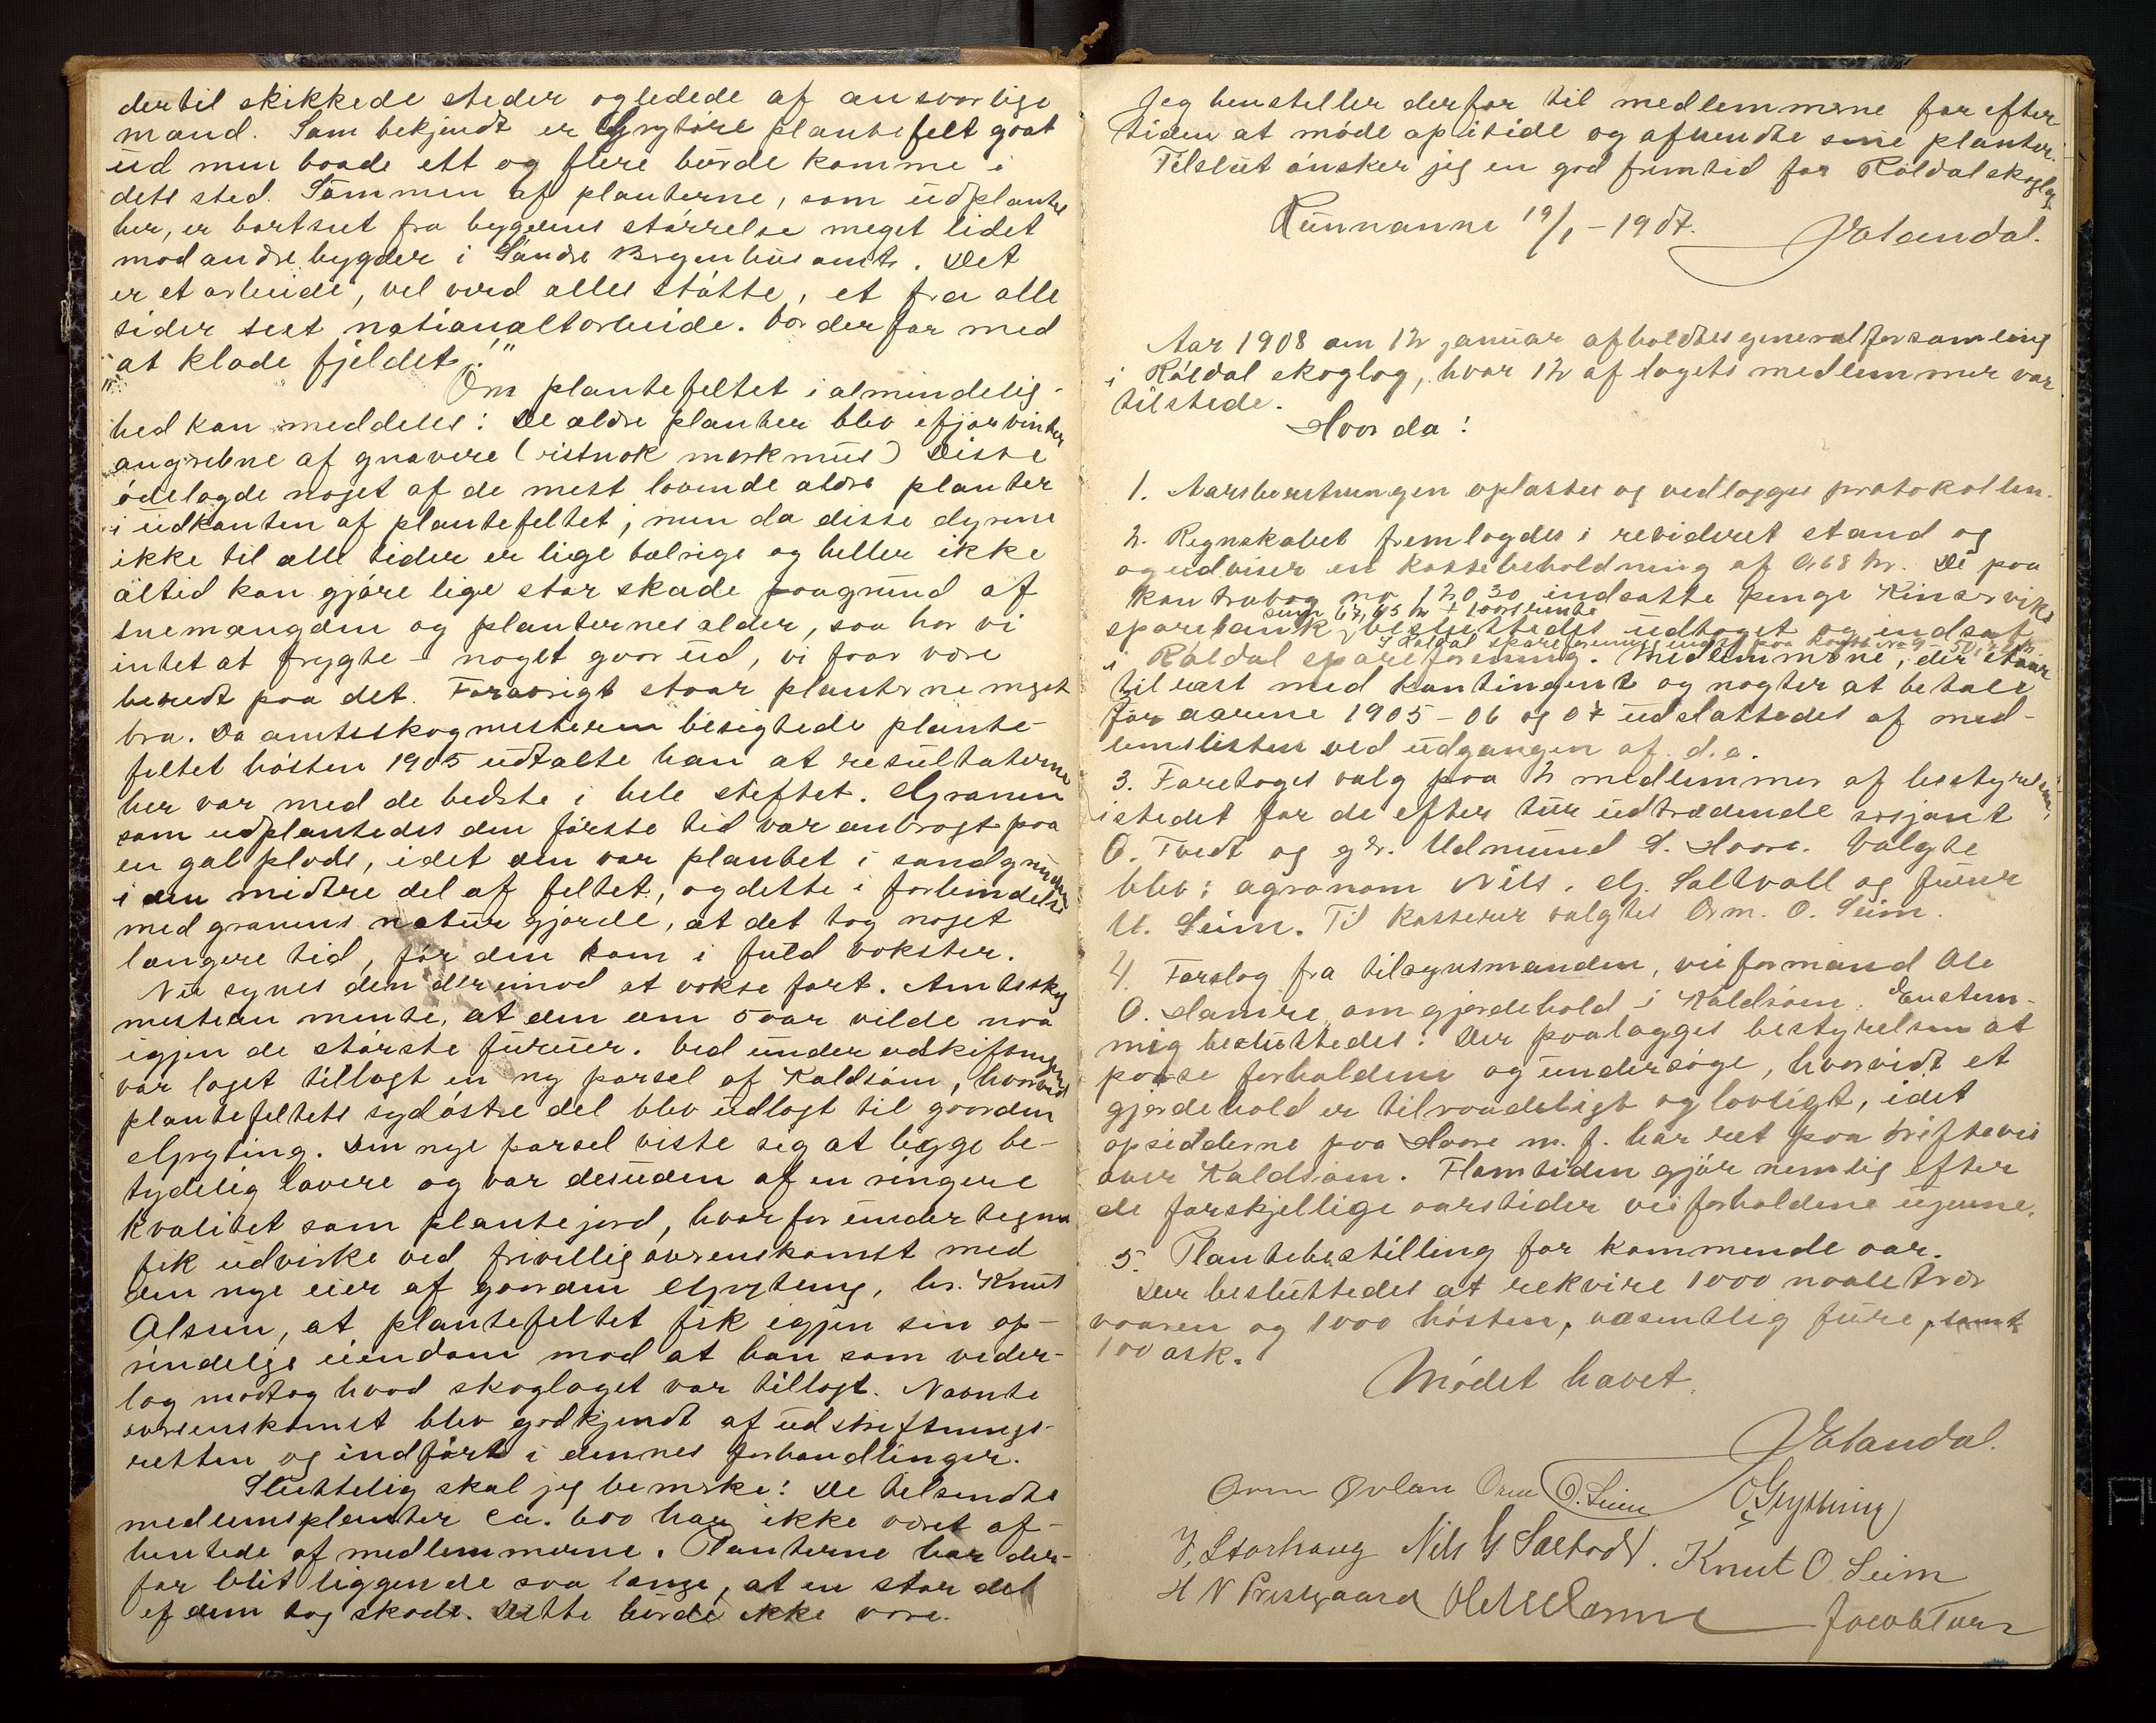 dertil skikkede steder og ledede af ansvarlige
mænd. Som bekjendt er Grytöre plantefelt gaat
ud men baade ett og flere burde komme i
dets sted. Summen af planterne, som udplantes
her, er bortseet fra bygdens störrelse meget lidet
mod andre bygder i Söndre Bergenhus amt. Det
er et arbeide, vel verd alles stötte, et fra alle
sider seet nationalt arbeide. Vær derfor med
at klæde fjeldet!"
Om plantefeltet i almindelig-
hed kan meddeles: De ældre planter blev ifjor vinter
angrebne af gnavere (vistnok markmus) Disse
ödelagde noget af de mest lovende ældre planter
i udkanten af plantefeltet; men da disse dyrene
ikke til alle tider er lige talrige og heller ikke
altid kan gjöre lige stor skade paagrund af
snemængden og planternes alder, saa har vi
intet at frygte – noget gaar ud, vi faar være
beredt paa det. Foravrigt staar planterne meget
bra. Da amtsskogmesteren besigtede plante-
feltet hösten 1905 udtalte han at resultaterne
her var med de bedste i hele stiftet. Granen
som udplantedes den förste tid var anbragt paa
en gal plads, idet den var plantet i sandgrunden
i den midtre del af feltet, og dette i forbindelse
med granens natur gjorde, at det tog noget
længere tid, för den kom i fuld vokster.
Nu synes den derimod at vokse fort. Amtsskog
mesteren mente, at den om 5 aar vilde naa
igjen de störste furuer. Ved under udskiftningen
var laget tillagt en ny parsel af Kaldsöm, hvorved
plantefeltets sydöstre del blev udlagt til gaarden
Gryting. Den nye parsel viste sig at ligge be-
tydelig lavere og var desuden af en ringere
kvalitet som plantejord, hvorfor undertegnede
fik udvirke ved frivillig overenskomst med
den nye eier af gaarden Gryting, hr. Knut
Olsen, at plantefeltet fik igjen sin op-
rindelige eiendom mod at han som veder-
lag modtog hvad skoglaget var tillagt. Nævnte
overenskomst blev godkjendt af udskiftnings-
retten og indfört i dennes forhandlinger.
Sluttelig skal jeg bemerke: De tilsendte
medlemsplanter ca. 600 har ikke været af-
hentede af medlemmerne. Planterne har der-
for blit liggende saa længe, at en stor del
af dem tog skade. Dette burde ikke være.
Jeg henstiller derfor til medlemmerne for efter-
tiden at möde op itide og afhendte sine planter.
Tilslut önsker jeg en god fremtid for Röldal skoglag.
19/1 – 1907.
Aar 1908 den 12 januar afholdtes generalforsamling
i Röldal skoglag, hvor 12 af lagets medlemmer var
tilstede.
Hvor da:
1. Aarsberetningen oplæstes og vedlægges protokollen.
2. Regnskabet fremlagdes i revideret stand og
og udviser en kassebeholdning af 0,68 kr. De paa
kontrabog no 12030 indsatte penge Kinservik
sparebank besluttedes udtaget og indsat
i Röldal spareforening. Medlemmerne, der staar
til rest med kontingent og negter at betale
for aarene 1905 – 06 og 07 udslettedes af med-
lemslisten ved udgangen af d.a.
3. Foretoges valg paa 2 medlemmer af bestyrelsen,
istedet for de efter tur udtrædende sersjant
O. Tvedt og gdr. Udmund S. Haare. Valgte
blev: agronom Nils. G. Saltvoll og furer
U. Seim. Til kasserer valgtes Orm. O. Seim.
4. Forslag fra tilsynsmanden, veiformand Ole
O. Hamre, om gjerdehold i Kaldsöm. Enstem-
mig besluttedes: Der paalægges bestyrelsen at
passe forholdene og undersöge, hvorvidt et
gjerdehold er tilraadeligt og lovligt, idet
opsidderne paa Haare m. f. har ret paa driftevei
over Kaldsöm. Flomtiden gjör nemlig efter
de forskjellige aarstider veiforholdene ujevne.
5. Plantebestilling for kommende aar.
Der besluttedes at rekvire 1000 naaletrær
vaaren og 1000 hösten, væsentlig furu, samt
100 ask.
Mödet hævet.
Orm O. Seim O Grytting
J, Storhaug Nils G Saltvold. Knut O. Seim
H N Prestgaard